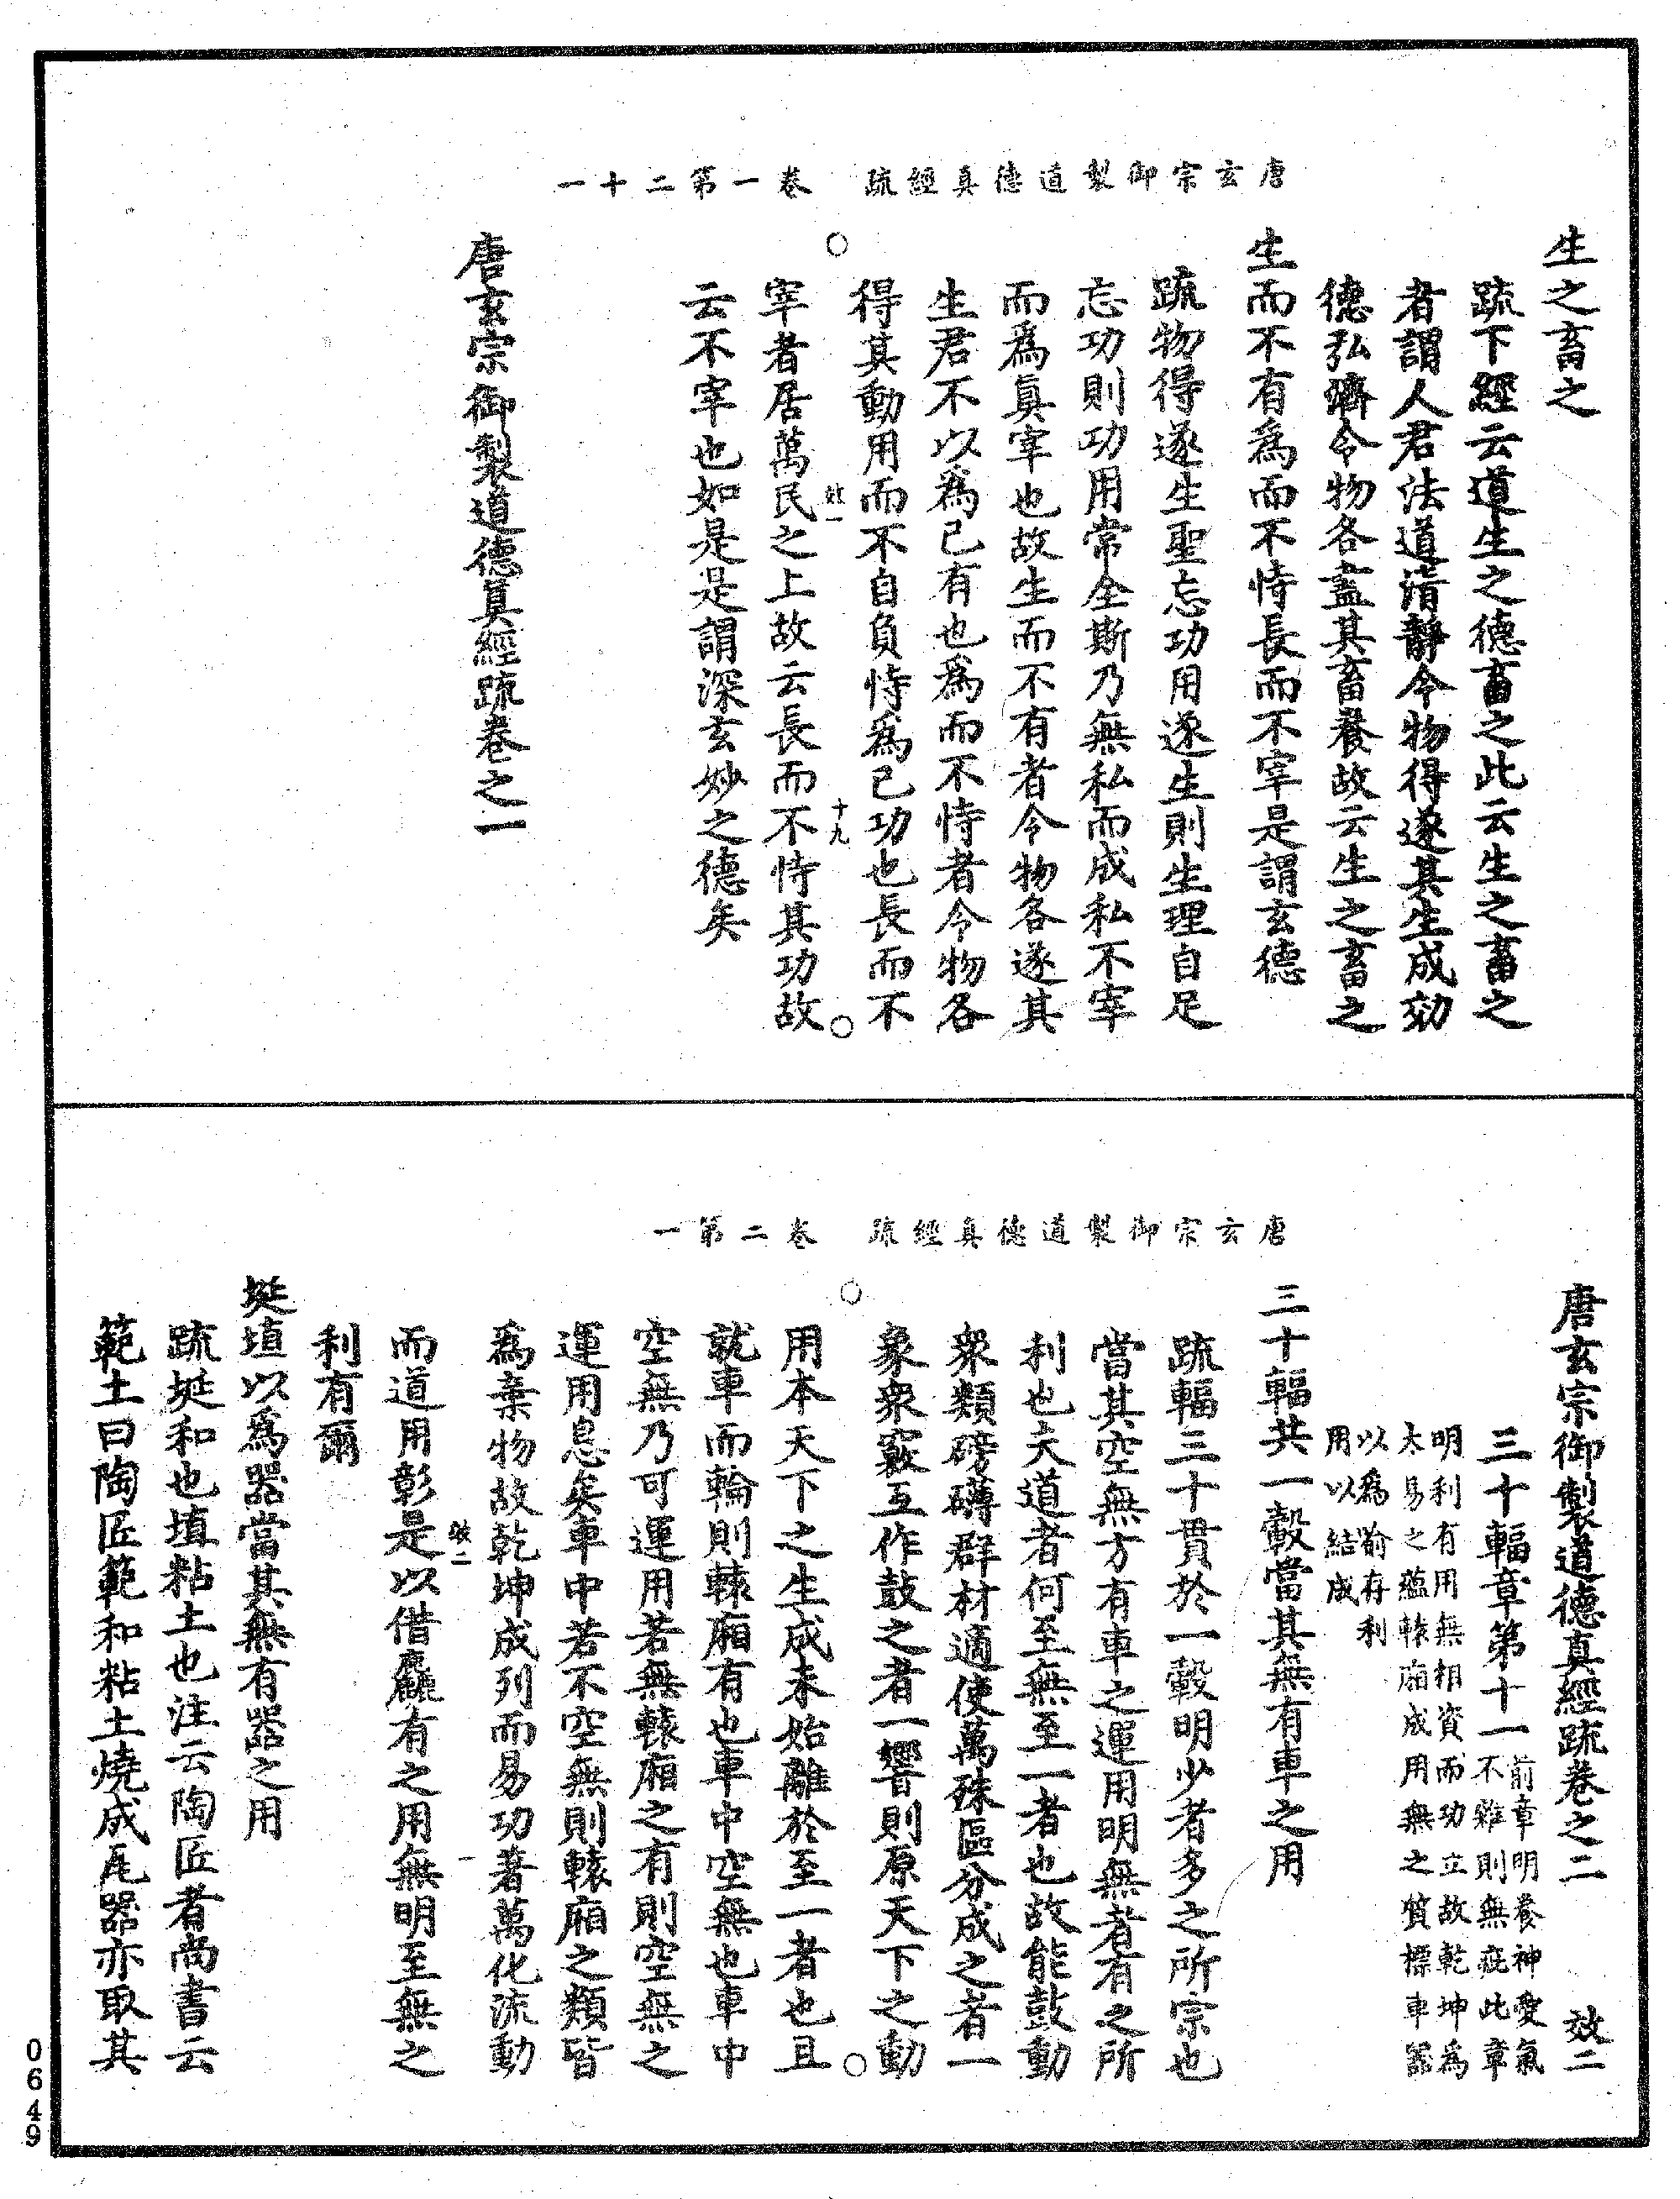 唐玄宗御製道德真經疏　卷一第二十一
生之畜之
疏下經云道生之德畜之此云生之畜之
者謂人君法道清靜令物得遂其生成効
德弘濟令物各盡其畜養故云生之畜之
生而不有爲而不恃長而不宰是謂玄德
疏物得遂生聖忘功用遂生則生理自足
忘功則功用常全斯乃無私而成私不宰
而爲真宰也故生而不有者令物各遂其
生君不以爲已有也爲而不恃者令物各
得其動用而不自負恃爲已功也長而不
效一　十九
宰者居萬民之上故云長而不恃其功故
云不宰也如是是謂深玄妙之德矣
唐玄宗御製道德真經疏卷之一
唐玄宗御製道德真經疏　卷二第一
唐玄宗御製道德真經疏卷之二　效二
三十輻章第十一
前章明養神愛氣
不雜則無疵此章
明利有用無相資而功立故乾坤爲
太易之蘊轅廂成用無之質標車器
以爲喻存利
用以結成
三十輻共一轂當其無有車之用
疏輻三十貫於一轂明少者多之所宗也
當其空無方有車之運用明無者有之所
利也夫道者何至無至一者也故能鼓動
衆類磅礡群材適使萬殊區分成之者一
象衆竅互作鼓之者一響則原天下之動
用本天下之生成未始離於至一者也且
就車而輪則轅廂有也車中空無也車中
空無乃可運用若無轅廂之有則空無之
運用息矣車中若不空無則轅廂之類皆
爲棄物故乾坤成列而易功著萬化流動
效二　一
而道用彰是以借麤有之用無明至無之
利有爾
埏埴以爲器當其無有器之用
疏埏和也埴粘土也注云陶匠者尚書云
範土曰陶匠範和粘土燒成瓦器亦取其
0649